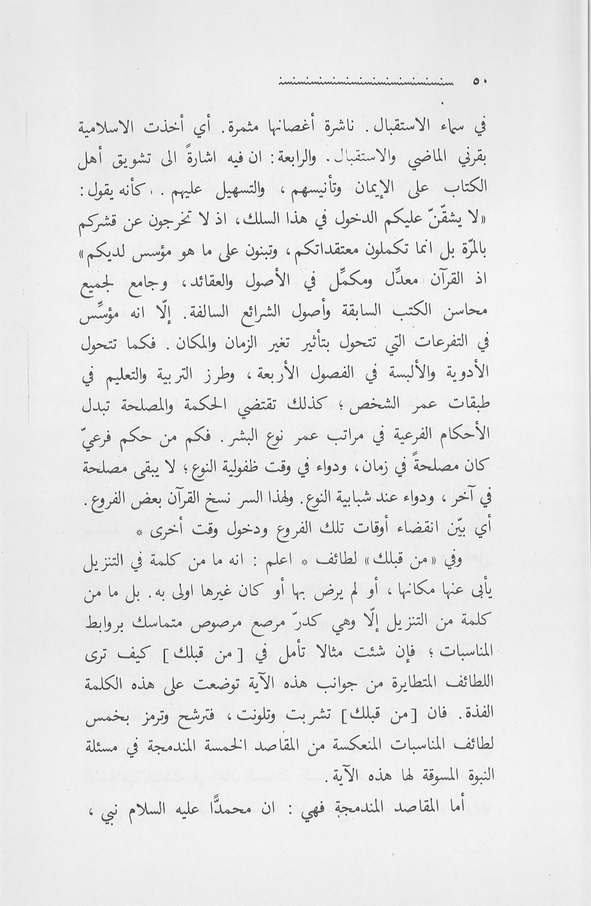 ٥٠
في سماء الاستقبال. ناشرة أغصانها مثمرة. أي أخذت الاسلامية
بقرني الماضي والاستقبال. والرابعة: ان فيه اشارةً الى تشويق أهل
الكتاب على الإيمان وتأنيسهم، والتسهيل عليهم. كأنه يقول:
«لا يشقّنّ عليكم الدخول في هذا السلك، اذ لا تخرجون عن قشركم
بالمرّة بل انما تكملون معتقداتكم، وتبنون على ما هو مؤسس لديكم»
اذ القرآن معدِّل ومكمِّل في الأصول والعقائد، وجامع لجميع
محاسن الكتب السابقة وأصول الشرائع السالفة. إلّا انه مؤسِّس
في التفرعات التي تتحول بتأثير تغير الزمان والمكان. فكما تتحول
الأدوية والألبسة في الفصول الأربعة، وطرز التربية والتعليم في
طبقات عمر الشخص؛ كذلك تقتضي الحكمة والمصلحة تبدل
الأحكام الفرعية في مراتب عمر نوع البشر. فكم من حكم فرعيّ
كان مصلحةً في زمان، ودواء في وقت ظفولية النوع؛ لا يبقى مصلحة
في آخر، ودواء عند شبابية النوع. ولهذا السر نسخ القرآن بعض الفروع.
أي بيّن انقضاء أوقات تلك الفروع ودخول وقت أخرى *
وفي «من قبلك» لطائف * اعلم: انه ما من كلمة في التنزيل
يأبى عنها مكانها، أو لم يرض بها أو كان غيرها اولى به. بل ما من
كلمة من التنزيل إلّا وهي كدرّ مرصع مرصوص متماسك بروابط
المناسبات؛ فإن شئت مثالا تأمل في [من قبلك] كيف ترى
اللطائف المتطايرة من جوانب هذه الآية توضعت على هذه الكلمة
الفذة. فان [من قبلك] تشربت وتلونت، فترشح وترمز بخمس
لطائف المناسبات المنعكسة من المقاصد الخمسة المندمجة في مسئلة
النبوة المسوقة لها هذه الآية.
أما المقاصد المندمجة فهي: ان محمدًّا عليه السلام نبي،